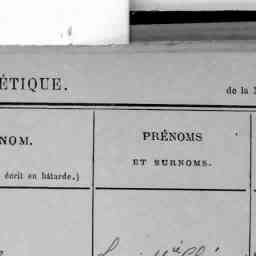 ÉTIQUE.
de la
NOM.
PRÉNOMS
écrit en bâtarde.)
ET SURNOMS.